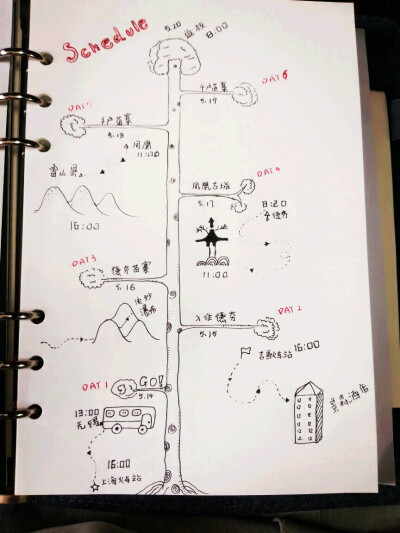 Schedule
5.20 返校
8:00
DAY 6
千户苗寨
5.19
DAY 5
千户苗寨
5.18
凤凰
11:00
雷山县
16:00
DAY 4
凤凰古城
5.17
8:20
德夯
11:00
DAY 3
德夯苗寨
5.16
流沙
瀑布
DAY 2
入住德夯
5.15
吉首火车站 16:00
酒店
DAY 1
GO!
5.14
13:00
无锡
16:00
上海火车站